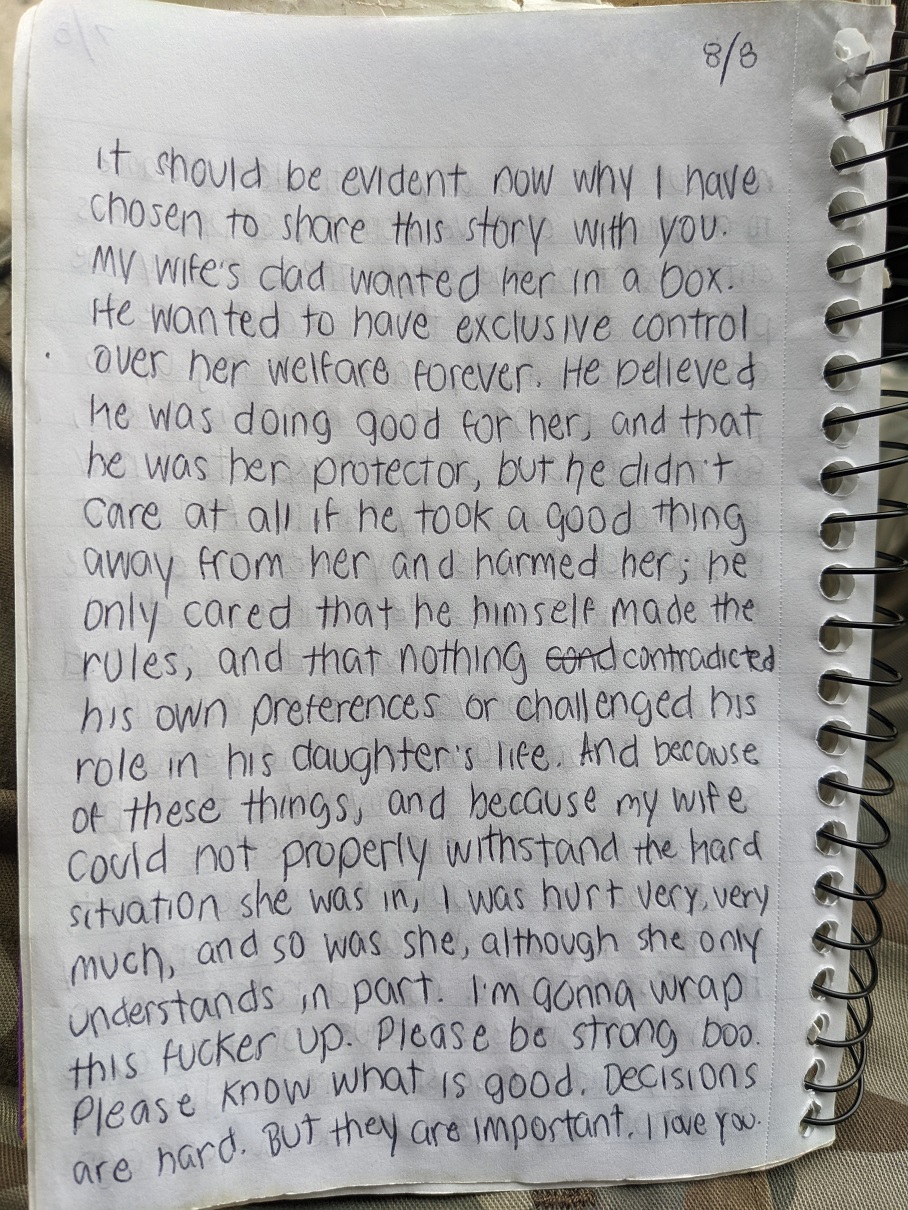 8/8
It should be evident now why I have
chosen to share this story with you.
My wife's dad wanted her in a box.
He wanted to have exclusive control
over her welfare forever. He believed
he was doing good for her, and that
he was her protector, but he didn't
care at all if he took a good thing
away from her and harmed her; he
only cared that he himself made the
rules, and that nothing cond contradicted
his own preferences or challenged his
role in his daughter's life. And because
of these things, and because my wife
could not properly withstand the hard
situation she was in, I was hurt very, very
much, and so was she, although she only
understands in part. I'm gonna wrap
this fucker up. Please be strong boo.
Please know what is good. Decisions
are hard. But they are important. I love you.